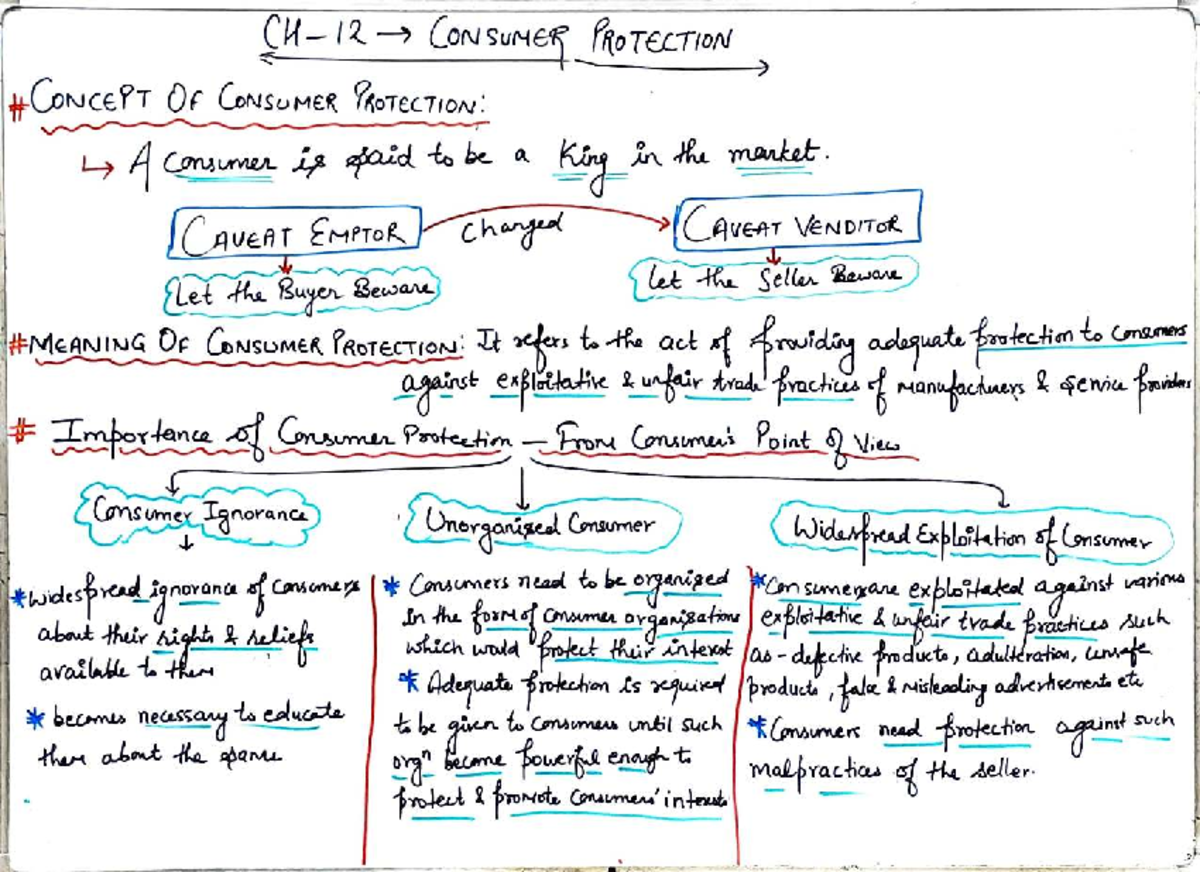 CH-12 → CONSUMER PROTECTION
# CONCEPT OF CONSUMER PROTECTION:
↳ A consumer is said to be a King in the market.
CAVEAT EMPTOR changed CAVEAT VENDITOR
Let the Buyer Beware
Let the Seller Beware
# MEANING OF CONSUMER PROTECTION: It refers to the act of providing adequate protection to consumers
against exploitative & unfair trade practices of manufacturers & service providers
# Importance of Consumer Protection – From Consumer's Point of View
Consumer Ignorance
Unorganised Consumer
Widespread Exploitation of Consumer
* widespread ignorance of consumers
about their rights & reliefs
available to them
* becomes necessary to educate
them about the same
* Consumers need to be organised
in the form of consumer organisations
which would protect their interest
* Adequate protection is required
to be given to consumers until such
orgⁿ become powerful enough to
protect & promote consumers' interests
* Consumers are exploitated against various
exploitative & unfair trade practices such
as - defective products, adulteration, unsafe
products, false & misleading advertisements etc
* Consumers need protection against such
malpractices of the seller.